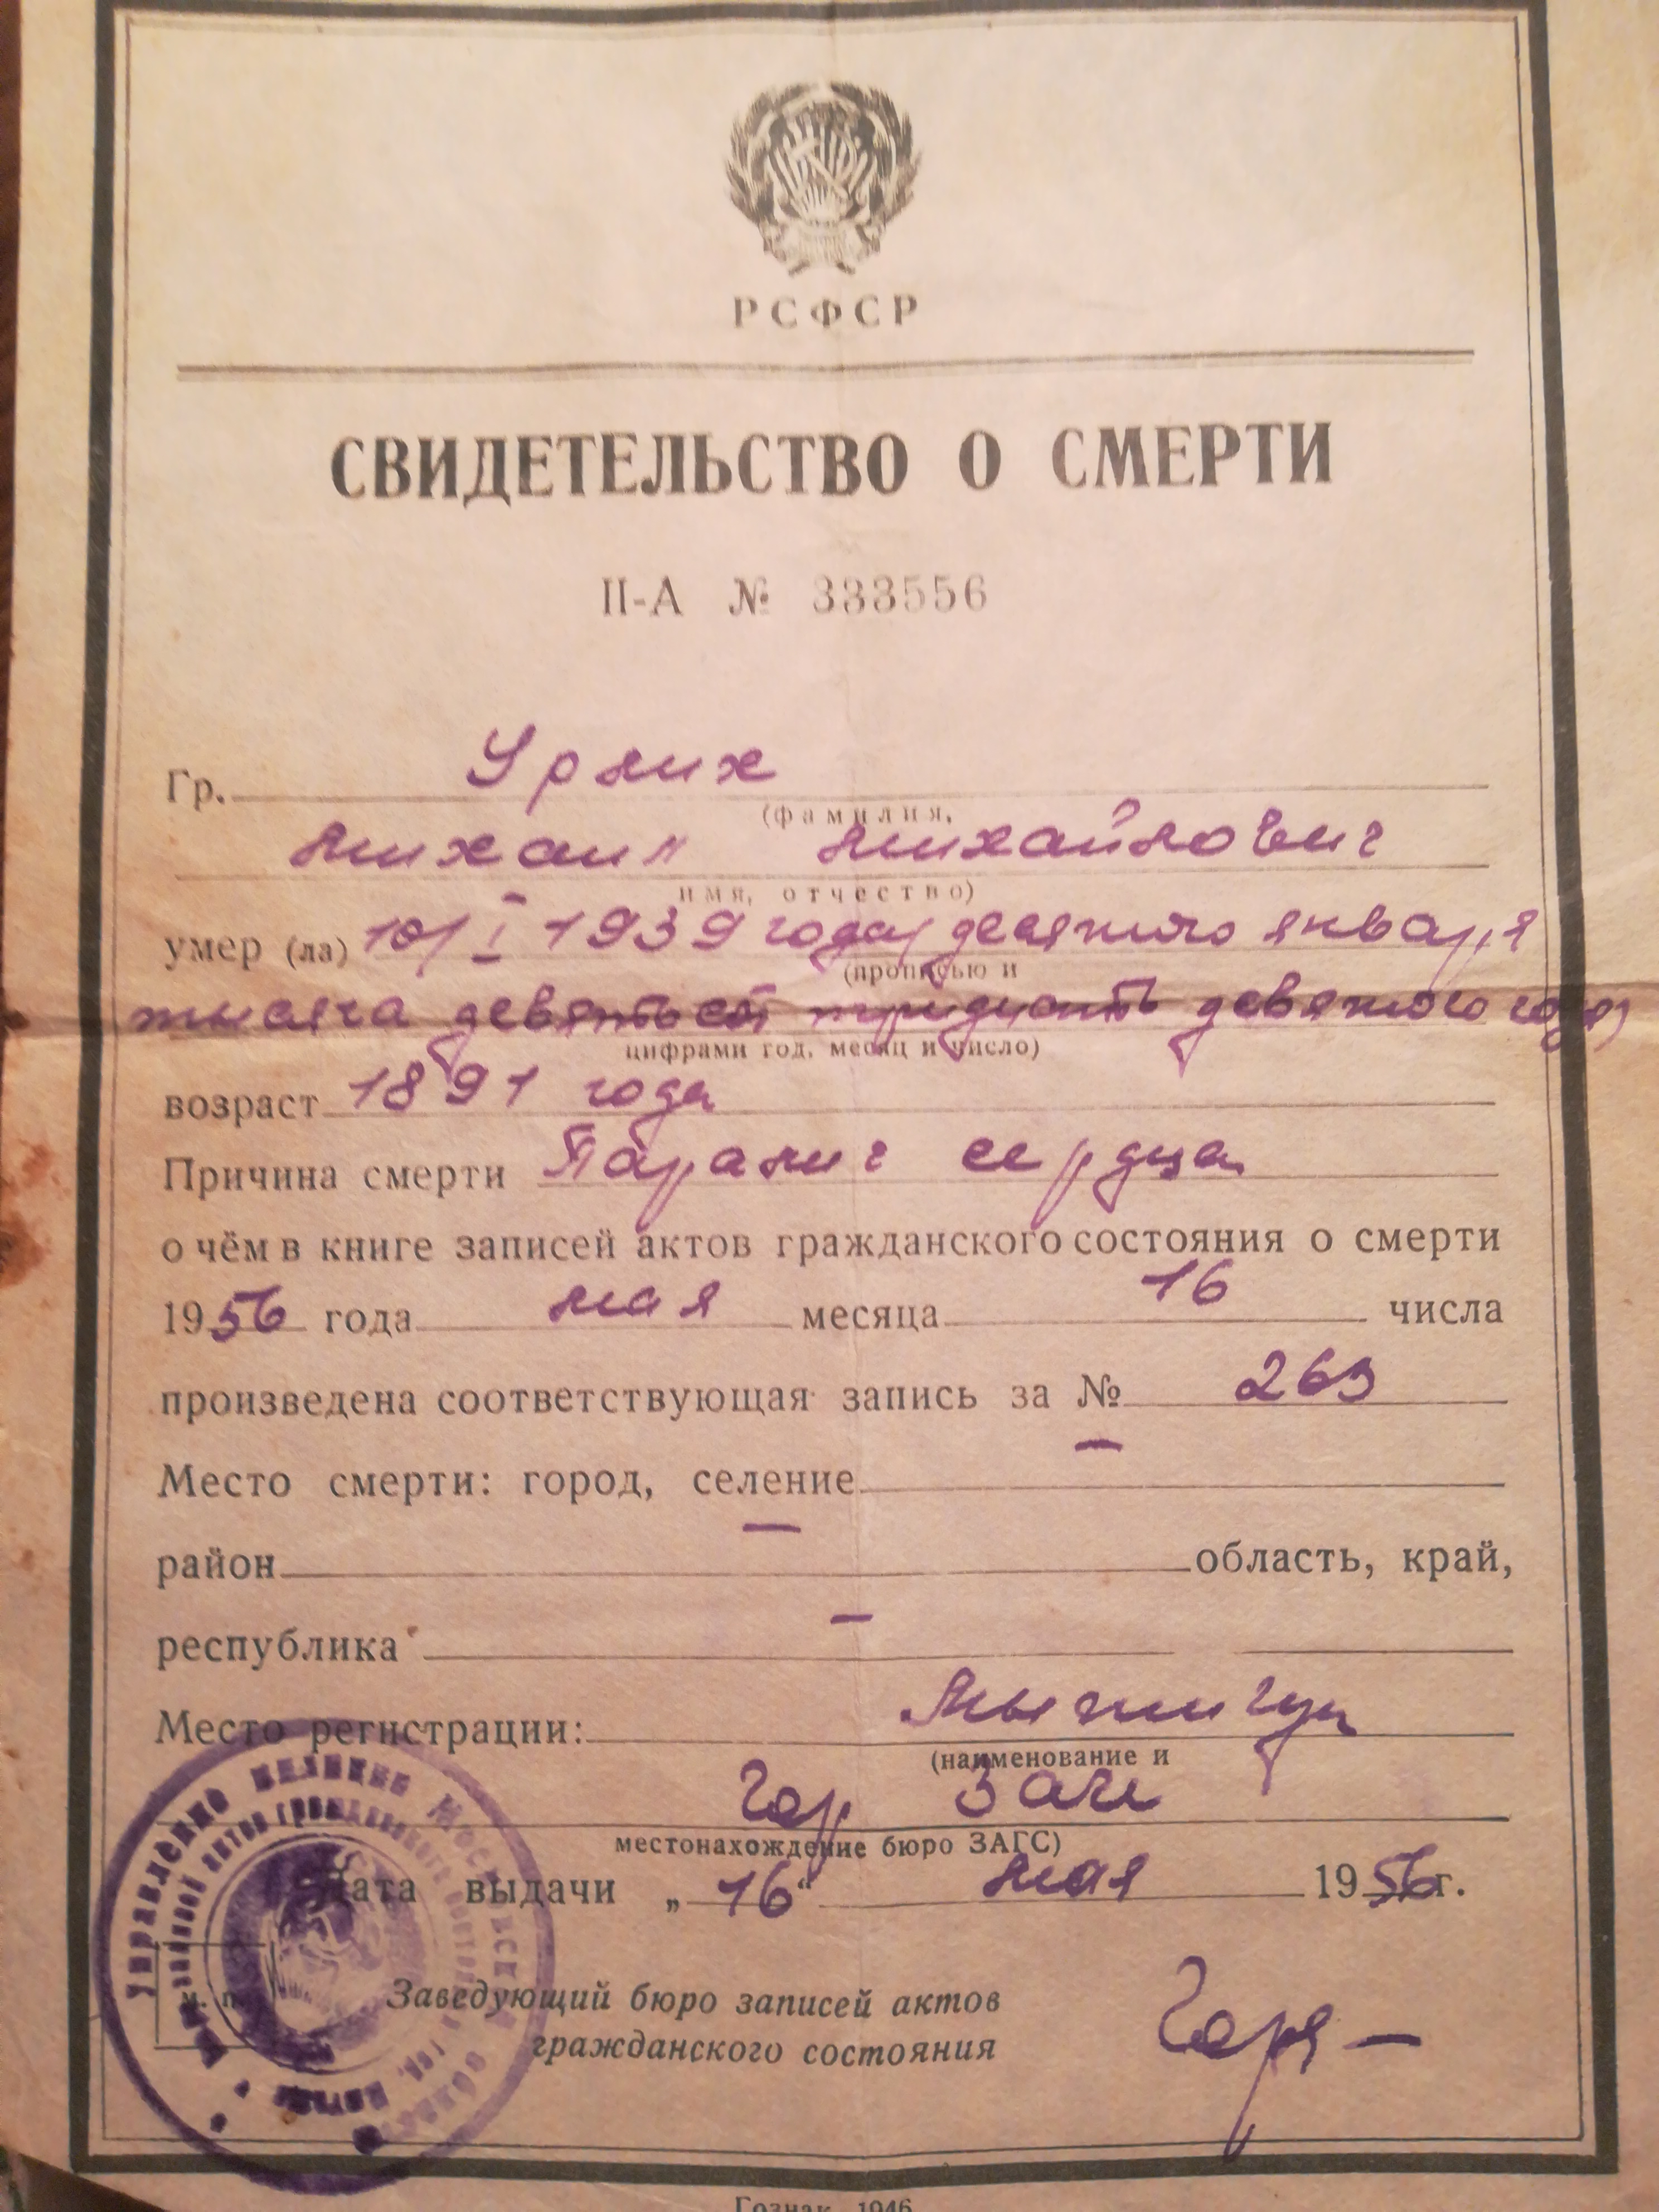 РСФСР
СВИДЕТЕЛЬСТВО О СМЕРТИ
II-А № 333556
Гр. Урлих
(фамилия,
Михаил Михайлович
имя, отчество)
умер (ла) 10/I 1939 года/десятого января
(прописью и
тысяча девятьсот тридцать девятого года)
цифрами год, месяц и число)
возраст 1891 года
Причина смерти Паралич сердца
о чём в книге записей актов гражданского состояния о смерти
1956 года мая месяца 16 числа
произведена соответствующая запись за № 263
Место смерти: город, селение —
район — область, край,
республика —
Место регистрации: Мытищи
(наименование и
Гор Загс
местонахождение бюро ЗАГС)
Дата выдачи „16“ мая 1956г.
м. п.
Заведующий бюро записей актов
гражданского состояния
Управление милиции Московск области
Гознак 1946